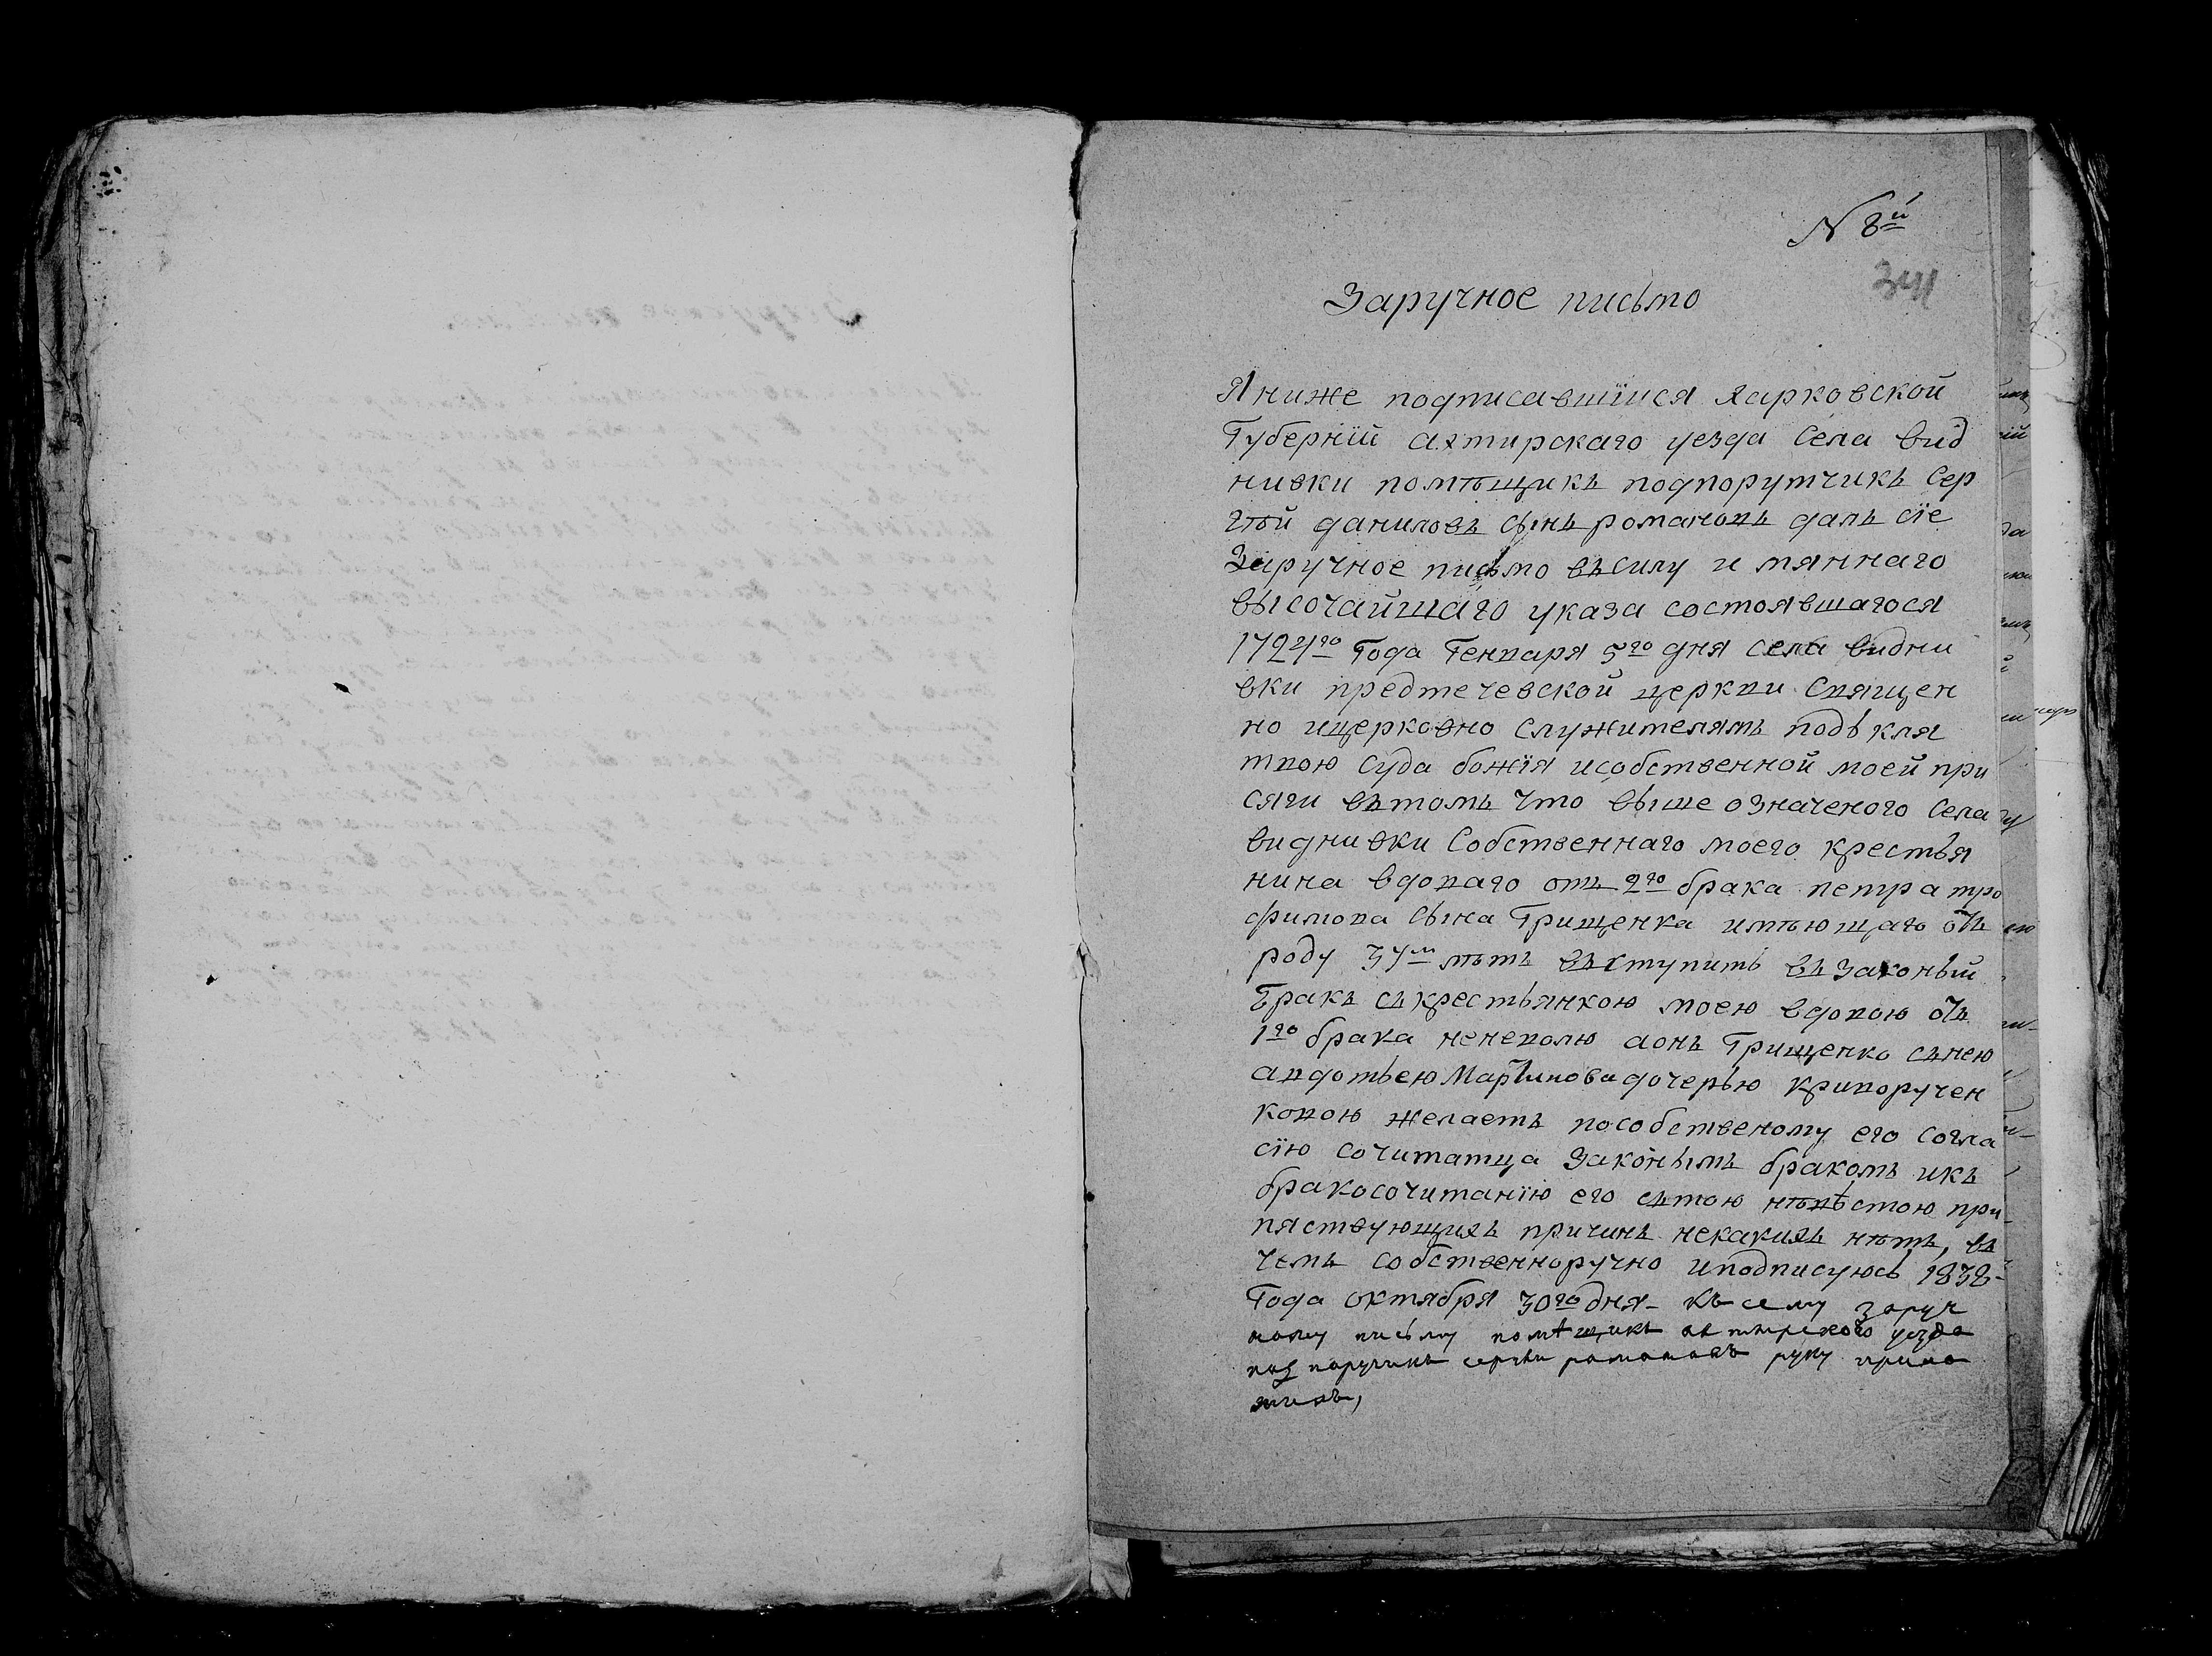 N 8й
341
Заручное письмо
Я ниже подписавшїися харковской
Губернїй ахтирскаго уезда села вид
нивки помѣщикъ подпорутчикъ Сер
гѣй даниловъ сынъ романовъ далъ сїе
Заручное письмо въсилу и мяннаго
высочайшаго указа состоявшагося
1724го Года Генваря 5го дня села видни
вки предтечевской церкви Священ
но ицерковно служителямъ подъ кля
твою Суда божїя исобственной моей при
сяги вътомъ что выше означеного Села
виднивки Собственнаго моего крестья
нина вдоваго отъ 2го брака петра тро
фимова сына Грищенка имѣющаго отъ
роду 34м лѣтъ въступить въ законый
бракъ съкрестьянкою моею вдовою отъ
1го брака неневолю аонъ Грищенко снею
авдотьею Мартинова дочерью криворучен
ковою желаетъ пособственому его согла
сїю сочитатца законымъ бракомъ икъ
бракосочитанїю его сътою нѣвѣстою при
пяствующихъ причинъ некакихъ нѣтъ, въ
чемъ собственноручно иподписуюсь 1838-
Года октября 30го дня - къ сему заруч
ному письму помѣщикъ ахтырского уезда
подпоручикъ сергѣй романовъ руку прило
жилъ,